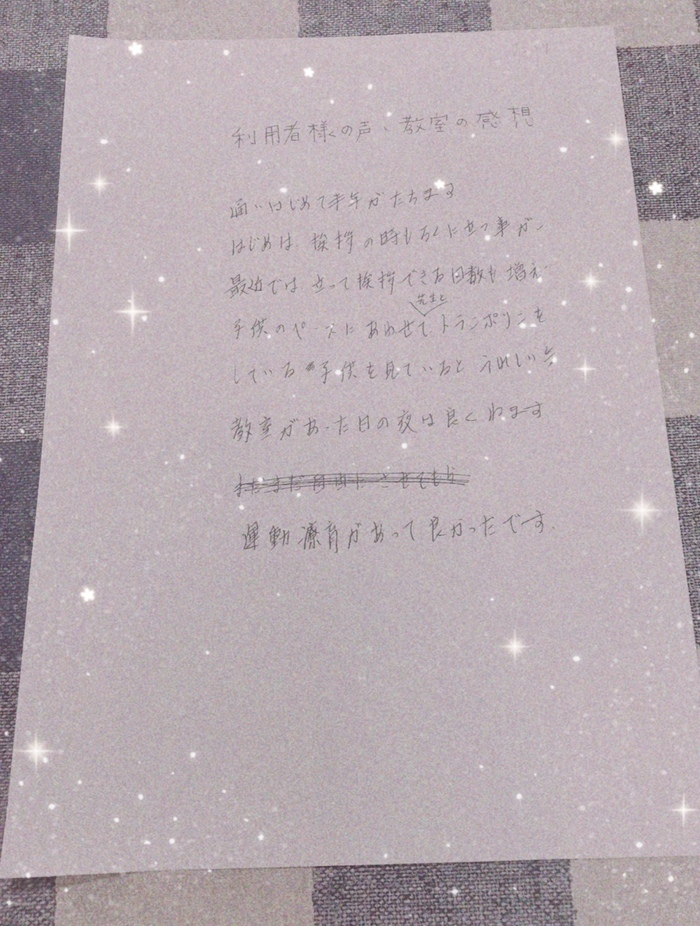 利用者様の声、教室の感想
通いはじめて半年がたちます
はじめは、挨拶の時もろくに立つ事が、
最近では立って挨拶できる回数も増え
先生と
子供のペースにあわせてトランポリンを
している子供を見ていると うれしい
教室があった日の夜は良くねます
運動療育があって良かったです.